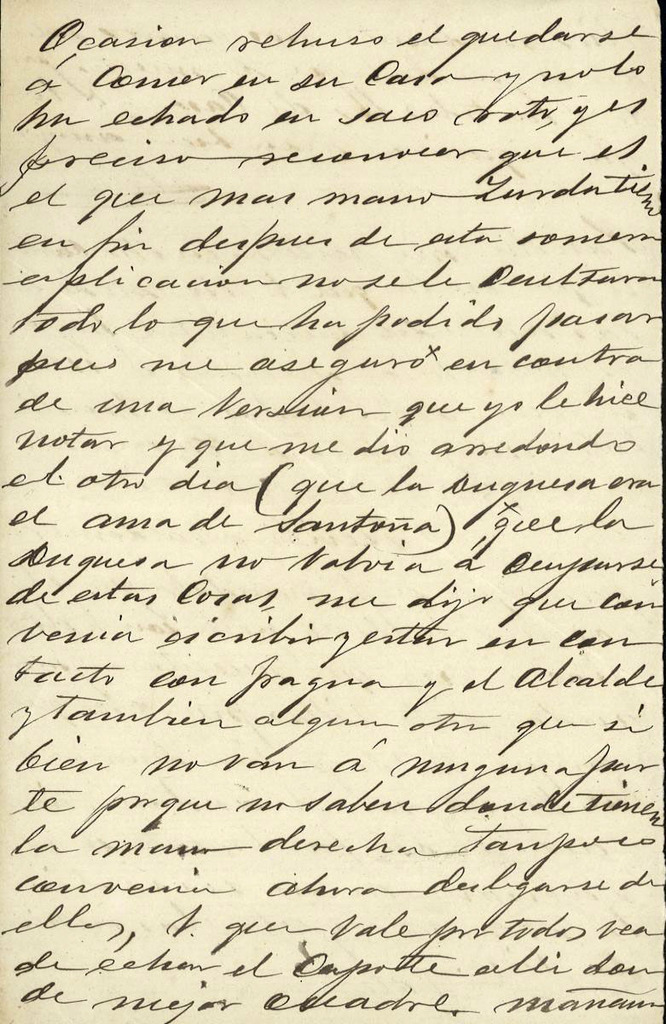 Ocasion rehuso el quedarse
á Comer en su Casa y no lo
ha echado en saco roto, y es
preciso reconocer que es
el que mas mano Zurda tiene
en fin despues de esta somera
esplicacion no se le Ocultara
todo lo que ha podido pasar
pues me aseguró en contra
de una Version que yo le hice
notar y que me dio arredondo
el otro dia (que la Duquesa era
el ama de Santoña) que la
Duquesa no Volvia á Ocuparse
de estas Cosas, me dijo que con
venia escribir y estar en con
tacto con fragua y el Alcalde
y tambien algun otro que si
bien no van á ninguna par
te porque no saben donde tienen
la mano derecha tampoco
convenia ahora desligarse de
ellos, V. que Vale por todos vea
de echar el Capote alli don
de mejor Cuadre. mañana